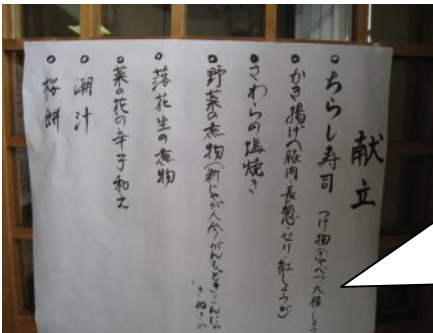 献立
ちらし寿司 つけ物(キャベツ大根しょう
かき揚げ(豚肉 長葱・セリ・紅しょうが)
さわらの塩焼き
野菜の煮物(新じゃが人参がんもどきこんにゃ
きぬさや
落花生の煮物
菜の花の辛子和え
潮汁
桜餅